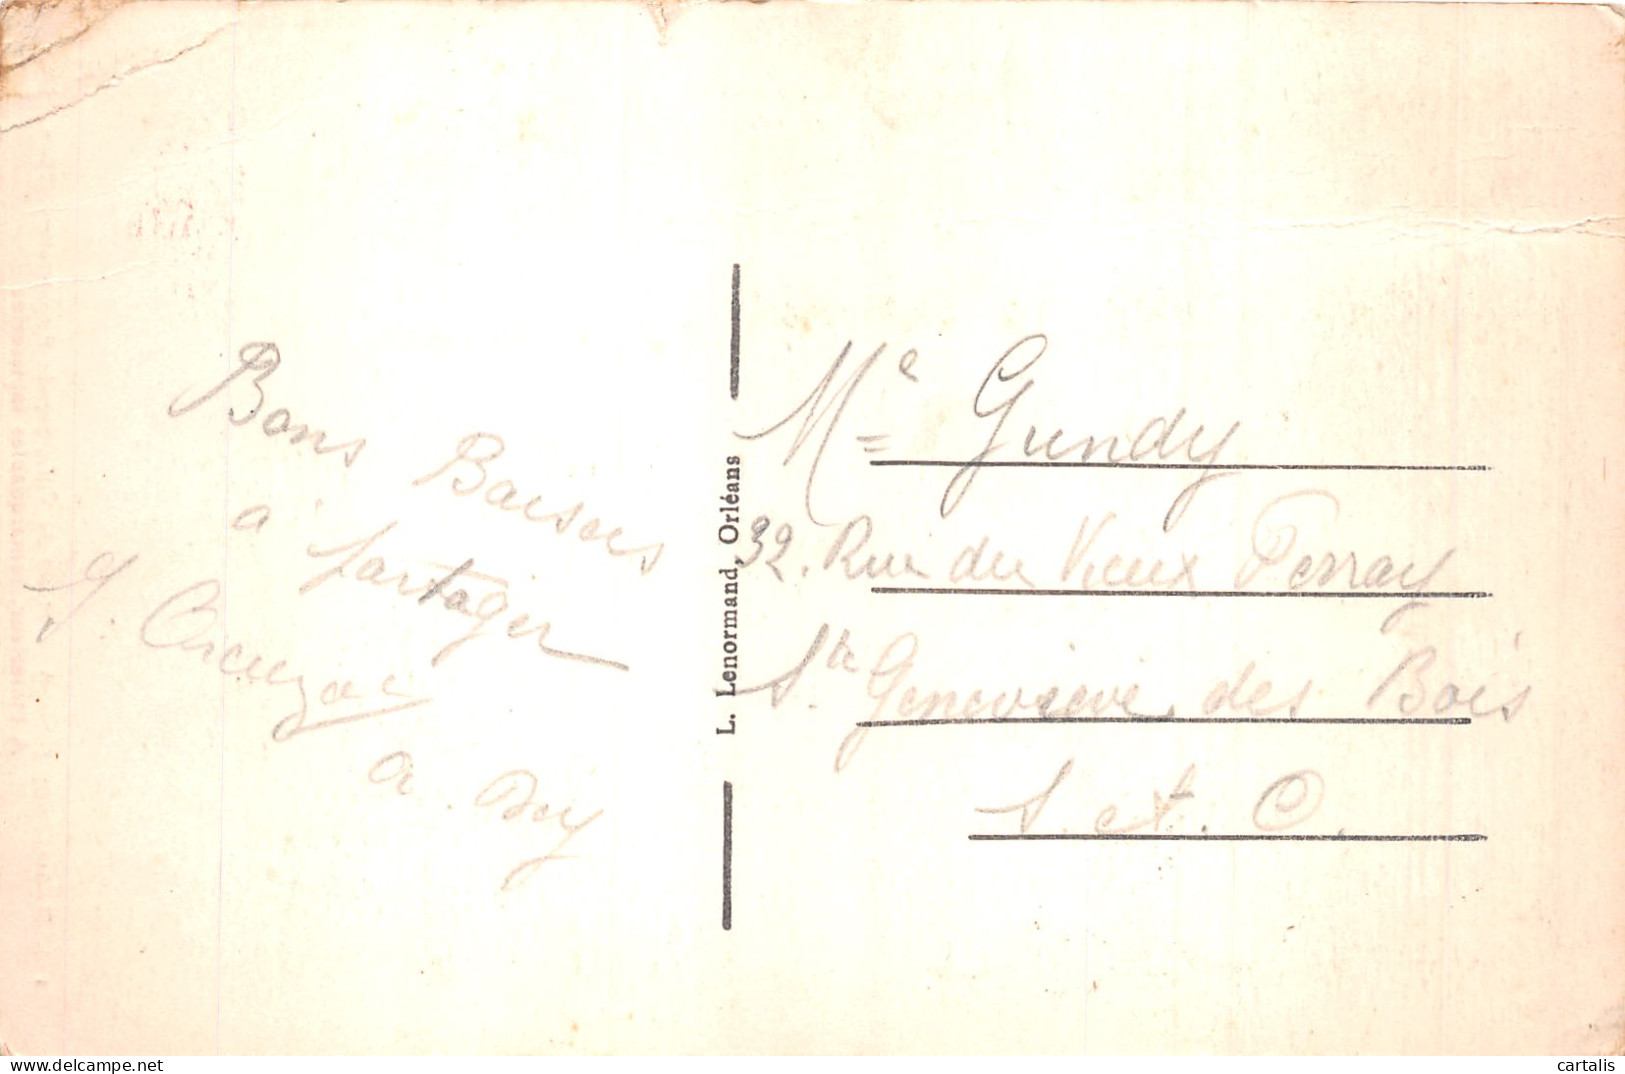 Bons Baisers
à partager
à
L. Lenormand, Orléans
Me Gundy
32. Rue du Vieux Perray
Ste Geneviève des Bois
S. et. O.
cartalis
delcampe.net